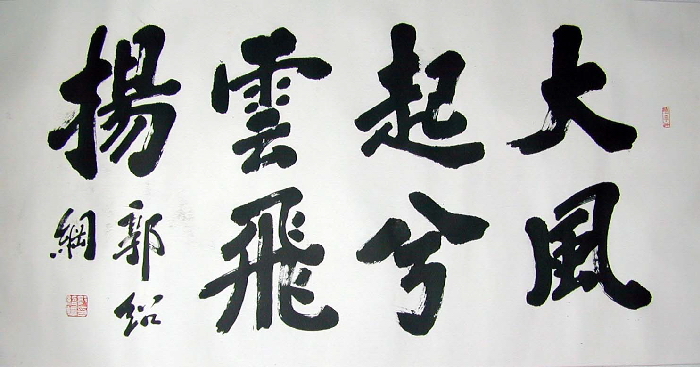 大風
起兮
雲飛
揚
郭紹
綱